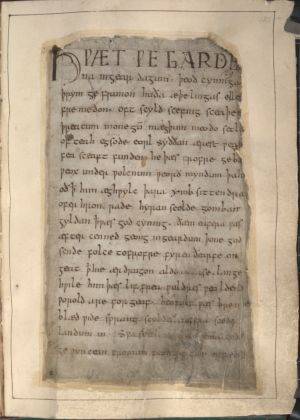 HǷÆT ǷE GARDE
na ingear dagum. þeod cyninga
þrym ge frunon huða æþelingas elle
fremedon. oft scyld scefing sceaþe
þreatum monegū mægþum meodo setl
of teah egsode eorl syððan ærest ƿear
fea sceaft funden he þæs frofre geba
ƿeox under ƿolcnum ƿeorð myndum þah
oð ꝥ him æghƿylc þara ymb sittendra
ofer hron rade hyran scolde gomban
gyldan ꝥ ƿæs god cyning. ðæm eafera ƿæs
æfter cenned geong in geardum þone god
sende folce tofrofre fyren ðearfe on
geat ꝥ hie ær drugon aldor ase. lange
hƿile him þæs lif frea ƿuldres ƿealdend
ƿorold are for geaf. beoƿulf ƿæs breme
blæd ƿide sprang scyldes eafera scede
landum in. Sƿa sceal uma gode
ge ƿyrcean fromum feoh giftum on fæder